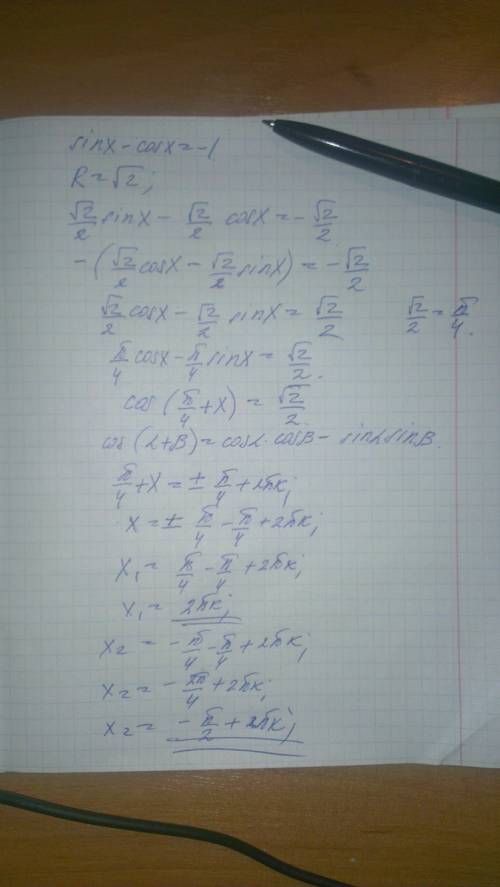 sinx - cosx = -1
R = √2;
√2/2 sinx - √2/2 cosx = - √2/2
- (√2/2 cosx - √2/2 sinx) = - √2/2
√2/2 cosx - √2/2 sinx = √2/2 √2/2 = π/4.
π/4 cosx - π/4 sinx = √2/2.
cos (π/4 + x) = √2/2.
cos (α+β) = cosα · cosβ - sinα sinβ.
π/4 + x = ± π/4 + 2πк;
x = ± π/4 - π/4 + 2πк;
x₁ = π/4 - π/4 + 2πк;
x₁ = 2πк;
x₂ = - π/4 - π/4 + 2πк;
x₂ = - 2π/4 + 2πк;
x₂ = - π/2 + 2πк;